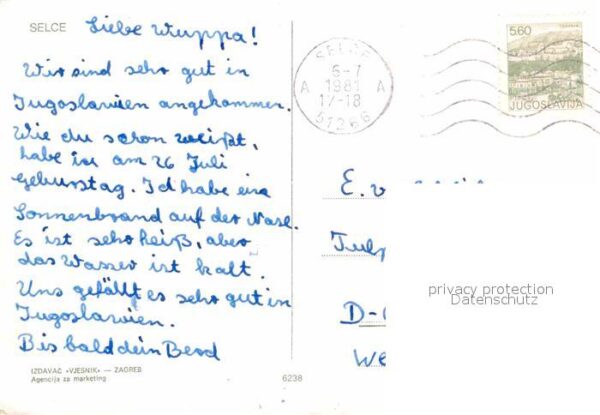 SELCE
Liebe Wuppa!
Wir sind sehr gut in
Jugoslawien angekommen.
Wie du schon weißt,
habe ich am 26 Juli
Geburstag. Ich habe ein
Sonnenbrand auf der Nase.
Es ist sehr heiß, aber
das Wasser ist kalt.
Uns gefällt es sehr gut in
Jugoslawien.
Bis bald dein Bernd
IZDAVAČ »VJESNIK« — ZAGREB
Agencija za marketing
6238
SELCE
6-7
A 1981 A
17-18
51266
5.60
JUGOSLAVIJA
E. v.
Tulp
D-
We
privacy protection
Datenschutz